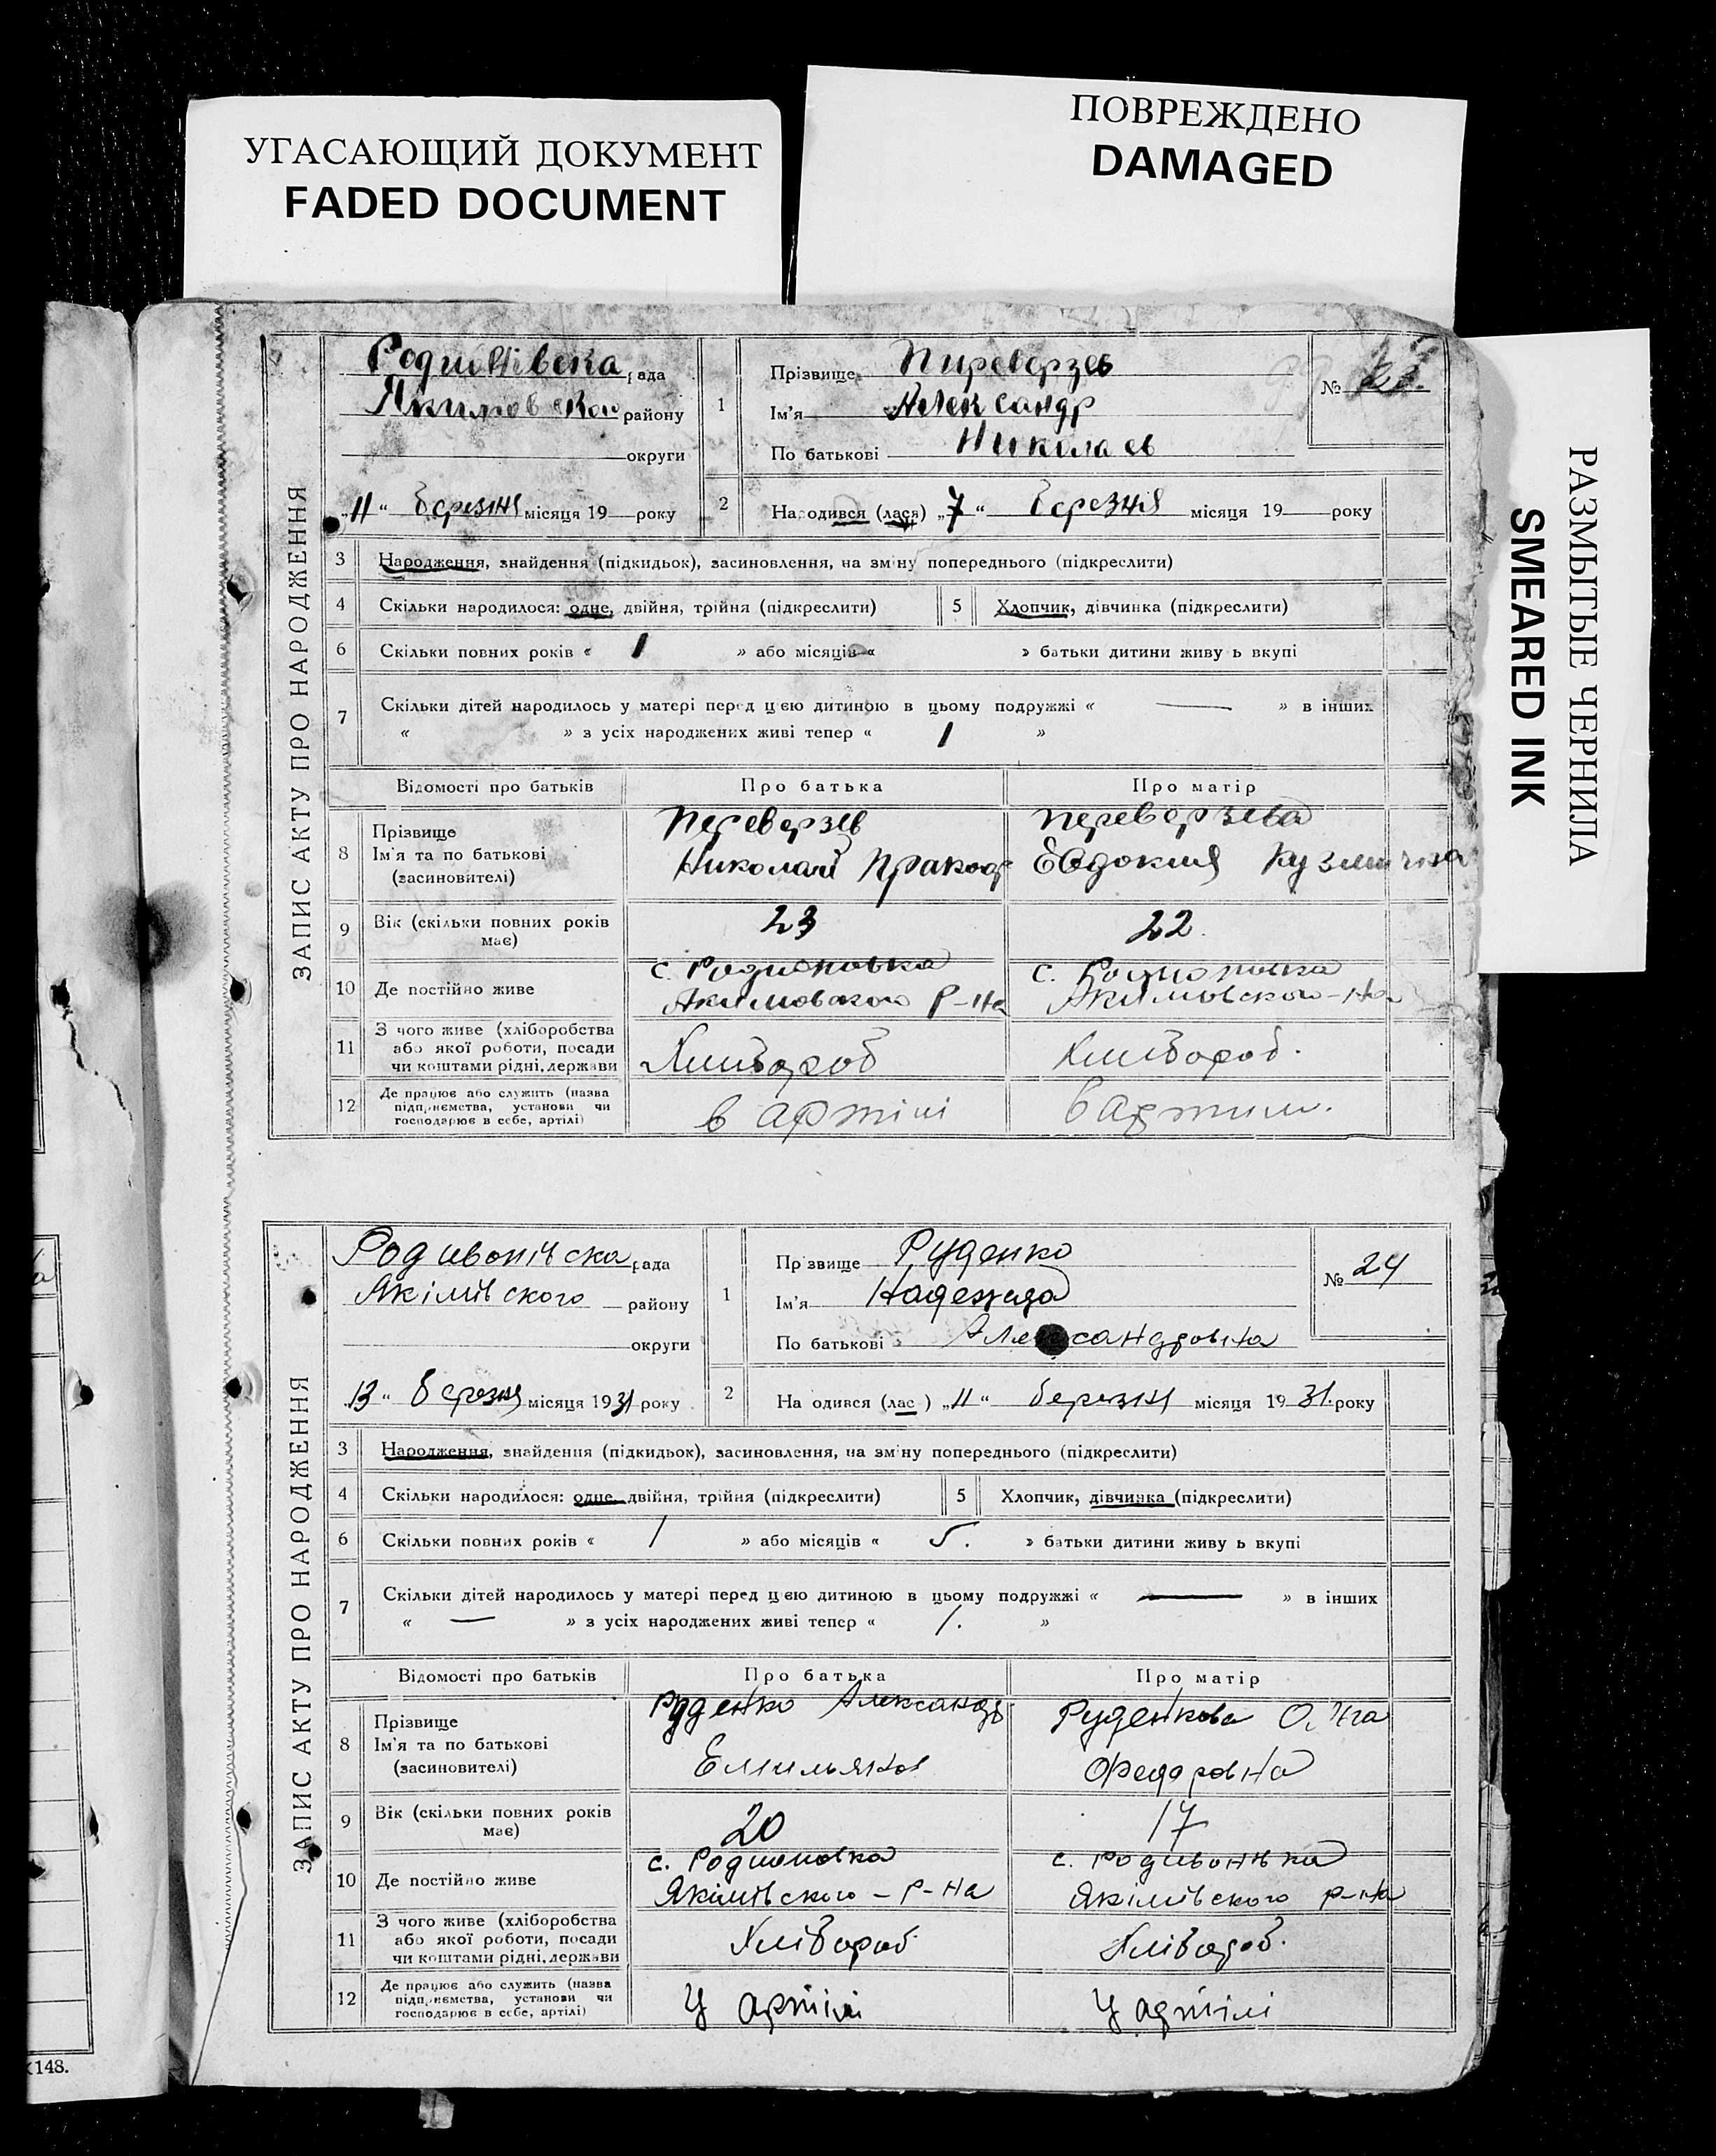 УГАСАЮЩИЙ ДОКУМЕНТ
FADED DOCUMENT
ПОВРЕЖДЕНО
DAMAGED
РАЗМЫТЫЕ ЧЕРНИЛА
SMEARED INK
ЗАПИС АКТУ ПРО НАРОДЖЕННЯ
рада
району
округи
„11“ березня місяця 19 року
1
Прізвище Пиреверзев
Ім'я Александр
По батькові Николаев
№ 23.
2
Народився (лася) „7“ березня місяця 19 року
3 Народження, знайдення (підкидьок), засиновлення, на зміну попереднього (підкреслити)
4 Скільки народилося: одне, двійня, трійня (підкреслити) 5 Хлопчик, дівчинка (підкреслити)
6 Скільки повних років « 1 » або місяців « » батьки дитини живуть вкупі
7 Скільки дітей народилось у матері перед цією дитиною в цьому подружжі « — » в інших
« » з усіх народжених живі тепер « 1 »
Відомості про батьків Про батька Про матір
8 Прізвище
Ім'я та по батькові
(засиновителі)
Переверзев
Николай
Переверзева
Евдокия
9 Вік (скільки повних років
має)
23
22.
10 Де постійно живе
с. Родионовка
Акимовского р-на
с. Родионовка
Акимовского-на
11 З чого живе (хліборобства
або якої роботи, посади
чи коштами рідні, держави
Хлибороб
Хлибороб.
12 Де працює або служить (назва
підприємства, установи чи
господарює в себе, артілі)
в артілі
в артили.
ЗАПИС АКТУ ПРО НАРОДЖЕННЯ
Родивонівска рада
Якімівского району
округи
13“ березня місяця 1931 року
1
Прізвище Руденко
Ім'я Надежда
По батькові Александровна
№ 24
2
Народився (лас) „11“ березня місяця 1931. року
3 Народження, знайдення (підкидьок), засиновлення, на зміну попереднього (підкреслити)
4 Скільки народилося: одне, двійня, трійня (підкреслити) 5 Хлопчик, дівчинка (підкреслити)
6 Скільки повних років « 1 » або місяців « 5. » батьки дитини живуть вкупі
7 Скільки дітей народилось у матері перед цією дитиною в цьому подружжі « — » в інших
« — » з усіх народжених живі тепер « 1. »
Відомості про батьків Про батька Про матір
8 Прізвище
Ім'я та по батькові
(засиновителі)
Руденко Александр
Емильянов
Руденкова
Федоровна
9 Вік (скільки повних років
має)
20
17
10 Де постійно живе
с. Родионовка
Якімівского-р-на
с. Родивонівка
Якімівского р-на
11 З чого живе (хліборобства
або якої роботи, посади
чи коштами рідні, держави
Хлібороб
Хлібороб.
12 Де працює або служить (назва
підприємства, установи чи
господарює в себе, артілі)
У артілі
У артілі
148.